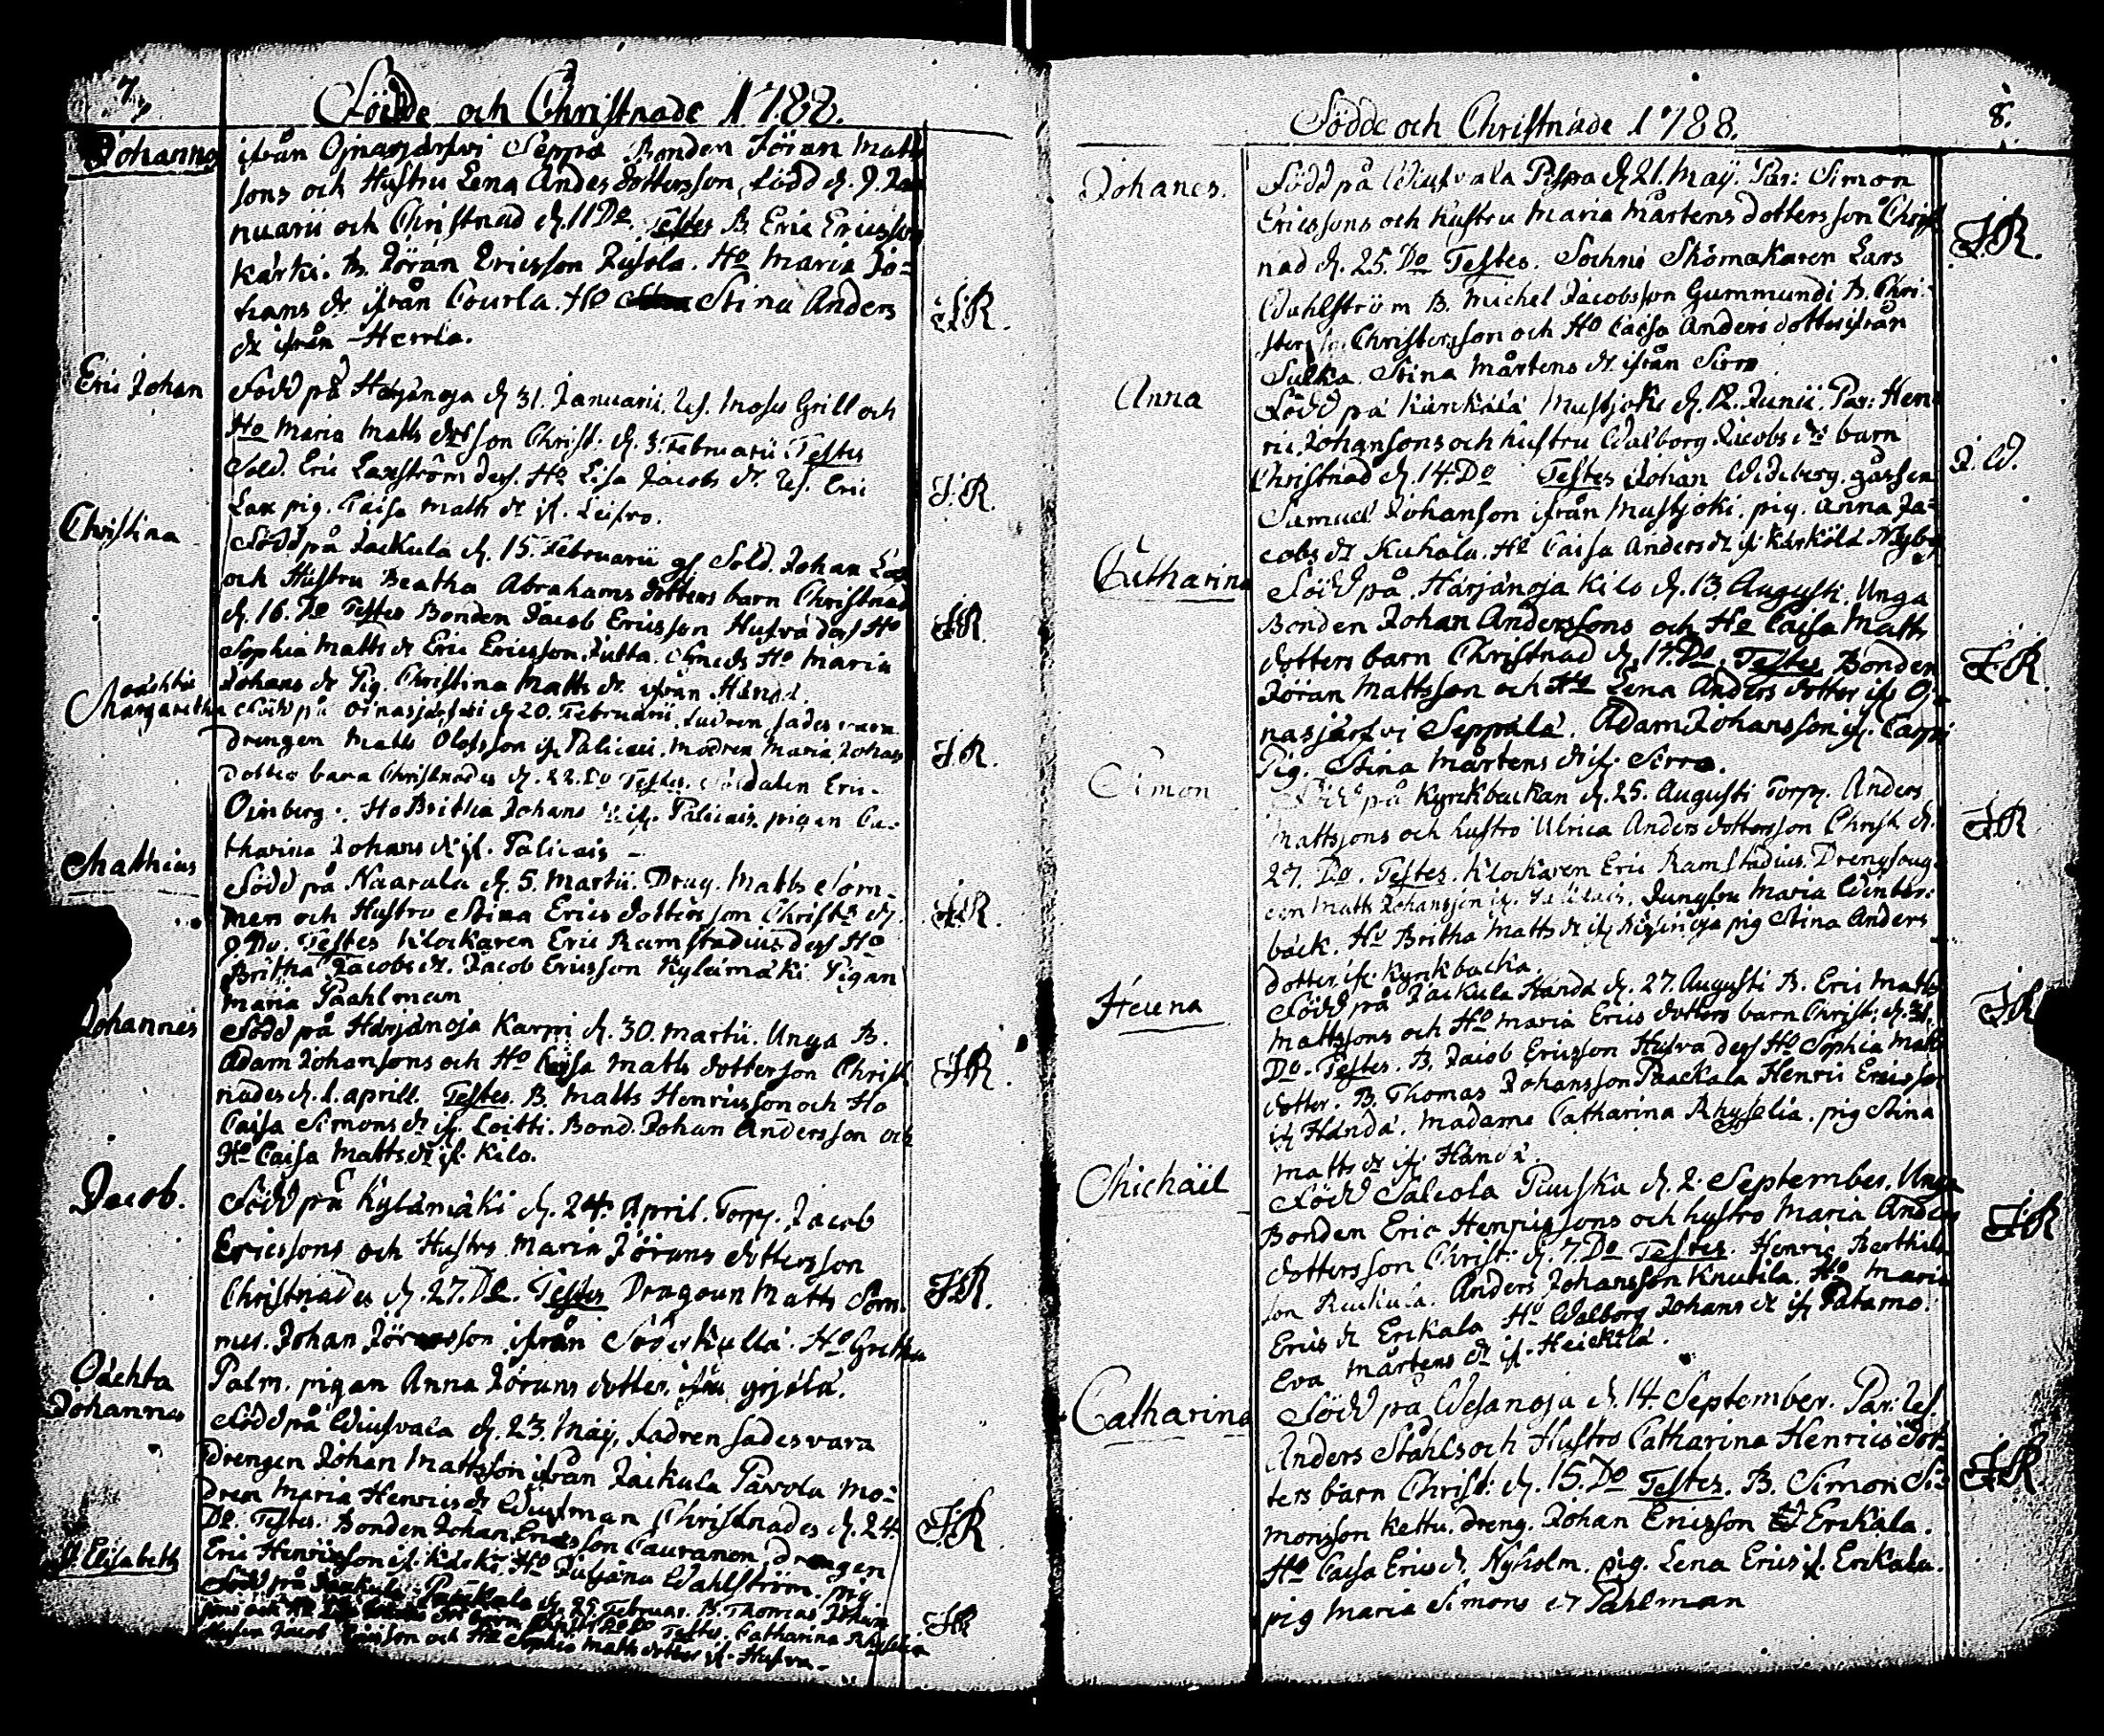 7.
Födde och Christnade 1788.
Johannes
ifrån Ojnasjärfvi Seppä Bonden Jöran Matts
sons och Hustru Lena Anders dottersson, född d. 9. Jan
nuarii och Christnad d. 11 Do. Testes B. Eric Ericsson
Kärki. B. Jöran Ericsson Jusola. Ho Maria Jo=
hans dr ifrån Courla. Ho Stina Anders
dr ifrån Herrla.
J.R.
Eric Johan
Född på Härjänoja d. 31. Januarii. Uf. Moses Grill och
Ho Maria Matts drs son Christ. d. 3. Februarii Testes
Sold. Eric Laxström dess Ho Lisa Jacobs dr. Uf. Eric
Lax pig. Caisa Matts dr if.
J.R.
Christina
Född på Jackula d. 15. Februarii gf. Sold. Johan
och Hustru Beatha Abrahams dotters barn Christnad
d. 16. Do Testes Bonden Jacob Ericsson Hufva dess Ho
Sophia Matts dr Eric Ericsson Jutta. Ho Maria
Johans dr Pig. Christina Matts dr. ifrån Händä.
J.R.
Oächta
Margaretha
Född på Oinasjärfvi d. 20. Februarii. Fadren sades vara
Drengen Matts Olofsson if. Palicais. Modren Maria Johans
dotter barn Christnades d. 22. Do Testes. Soldaten Eric
Ojnberg. Ho Britha Johans dr if. Palicais. pigan Ca=
tharina Johans dr if. Palicais
J.R.
Matthias
Född på Naarala d. 5. Martii. Drag. Matts Som=
mers och Hustru Stina Erics dotters son Christ. d.
9 Do. Testes Klockaren Eric Ramstadius dess Ho
Britha Jacobs dr. Jacob Ericsson Kylämäki Pigan
Maria Paahlman
J.R.
Johannes
Född på Härjänoja Karpi d. 30. Martii. Unga B.
Adam Johansons och Ho Caisa Matts dotterson Christ
nades d. 1. aprill. Testes. B. Matts Henricsson och Ho
Caisa Simons dr if. Loitti. Bond. Johan Andersson och
Ho Caisa Matts dr if. Kilo.
J.R.
Jacob.
Född på Kylämäki d. 24. April. Torp. Jacob
Ericssons och Hustro Maria Jörans dottersson
Christnades d. 27. Do. Testes Dragoun Matts Som
mer. Johan Jöransson ifrån Söderkulla. Ho Gretha
Palm. pigan Anna Jörans dotter. ifrå
J.R.
Oächta
Johannes
Född på Wiufvala d. 23. Maij, Fadren sades vara
Drengen Johan Mattsson ifrån Jackula Pavola Mo=
dren Maria Henrics dr Christnades d. 24.
Do. Testes. Bonden Johan Ericsson Cauranen, Drengen
Eric Henricsson if. Kärki. Ho Juliana Wahlström. pig
J.R.
Elisabeth
Född på Jackula Paackala d. 25. Februar. B. Thomas Johan
sons och Ho barn Christ. Testes. Catharina Rhyselia
Jacob Ericsson och Ho Sophia Matts dotter if. Hufva
J.R.
8.
Födde och Christnade 1788.
Johanes.
Född på Wiufvala Pispa d. 21. Maij. Par: Simon
Ericssons och hustru Maria Mårtens dottersson Christ
nad d. 25. Do Testes. Sochne Skomakaren Lars
Wahlström B. Michel Jacobsson Gummundi B. Chri=
ster Christersson och Ho Caisa Anders dotter ifrån
Sulka. Stina Mårtens dr. ifrån Sirro
J.R.
Anna
Född på Kärckälä Mustjoki d. 12. Junii. Par: Hen
ric Johansons och hustru Walborg Jacobs drs barn
Christnad d. 14. Do Testes Johan Wideberg. gossen
Samuel Johanson ifrån Mustjoki. pig. Anna Ja=
cobs dr Kuhala. Ho Caisa Anders dr if. Kärkölä Nyby
J.W.
Catharina
Född på Härjänoja Kilo d. 13. Augusti. Unga
Bonden Johan Anderssons och Ho Caisa Matts
dotters barn Christnad d. 17. Do. Testes Bonden
Jöran Mattsson och Ho Lena Anders dotter if. Oj=
nasjärfvi Seppälä. Adam Johansson if. Carpi
Pig. Stina Mårtens dr if. Sirro.
J.R.
Simon
Född på Kyrckbackan d. 25. Augusti Torp. Anders
Mattssons och hustro Ulrica Anders dottersson Christ. d.
27. Do. Testes. Klockaren Eric Ramstadius. Drengsoug=
nen Matts Johansson if. Palicais. Jungfru Maria Winter=
back. Ho Britha Matts dr if. pig Stina Anders
dotter if. Kyrkbacka.
J.R.
Helena
Född på Jackula Händä d. 27. Augusti B. Eric Matts
Mattssons och Ho Maria Erics dotters barn Christ. d. 31.
Do. Testes. B. Jacob Ericsson Hufva dess Ho Sophia Matts
dotter. B. Thomas Johansson Paackala Henric Ericsson
if. Händä. Madame Catharina Rhyselia. pig Stina
Matts dr if. Händä.
J.R.
Michaël
Född Salcola Puuska d. 2. September. Unga
Bonden Eric Henricssons och hustro Maria Anders
dottersson Christ: d. 7. Do Testes. Henric Berthils
son Rackula. Anders Johansson Knutila. Ho Maria
Erics dr Erckala Ho Walborg Johans dr if. Patamo.
Eva Mårtens dr if. Heickilä.
J.R.
Catharina
Född på Wesanoja d. 14. September. Par: Uf
Anders Ståhls och Hustro Catharina Henrics dot
ters barn Christ: d. 15. Do Testes. B. Simon Si=
monsson Kettu. dreng. Johan Ericsson Erckala.
Ho Caisa Erics dr. Nyholm. pig. Lena Erics if. Erckala.
pig Maria Simons dr Pahlman
J.R.